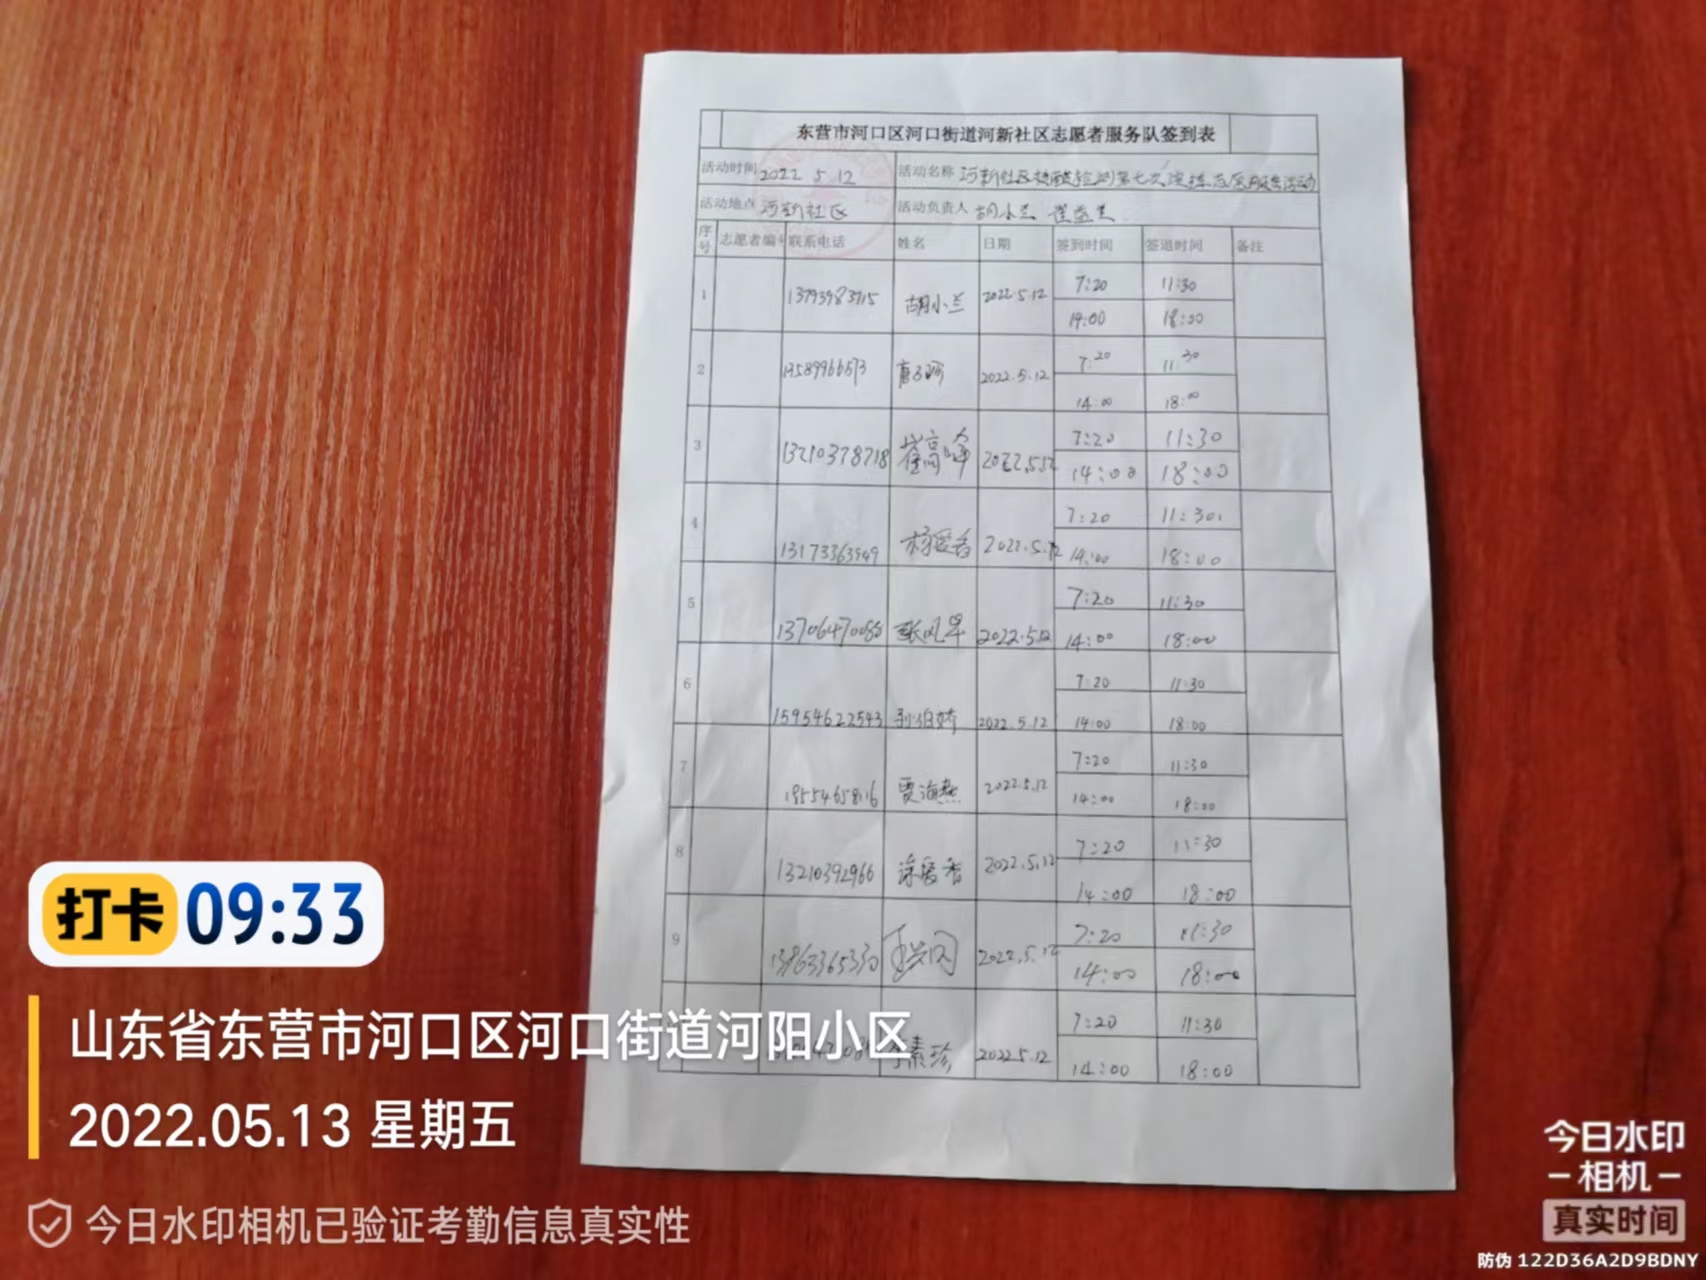 东营市河口区河口街道河新社区志愿者服务队签到表
活动时间 2022.5.12 活动名称 河新社区核酸检测第七次演练志愿服务活动
活动地点 河新社区 活动负责人 胡小兰
序号 志愿者编号 联系电话 姓名 日期 签到时间 签退时间 备注
1 13793983715 胡小兰 2022.5.12 7:20 11:30
14:00 18:00
2 13589966573 2022.5.12 7:20 11:30
14:00 18:00
3 13210378718 崔高峰 7:20 11:30
14:00 18:00
4 13173363949 杨爱香 2022.5.12 7:20 11:30
14:00 18:00
5 13706470086 张风早 2022.5.12 7:20 11:30
14:00 18:00
6 15954622543 2022.5.12 7:20 11:30
14:00 18:00
7 18554658116 贾海燕 2022.5.12 7:20 11:30
14:00 18:00
8 13210392966 涂爱香 2022.5.12 7:20 11:30
14:00 18:00
9 13963365330 2022.5.12 7:20 11:30
14:00 18:00
李素珍 2022.5.12 7:20 11:30
14:00 18:00
打卡 09:33
山东省东营市河口区河口街道河阳小区
2022.05.13 星期五
今日水印相机已验证考勤信息真实性
今日水印
相机
真实时间
防伪 122D36A2D9BDNY